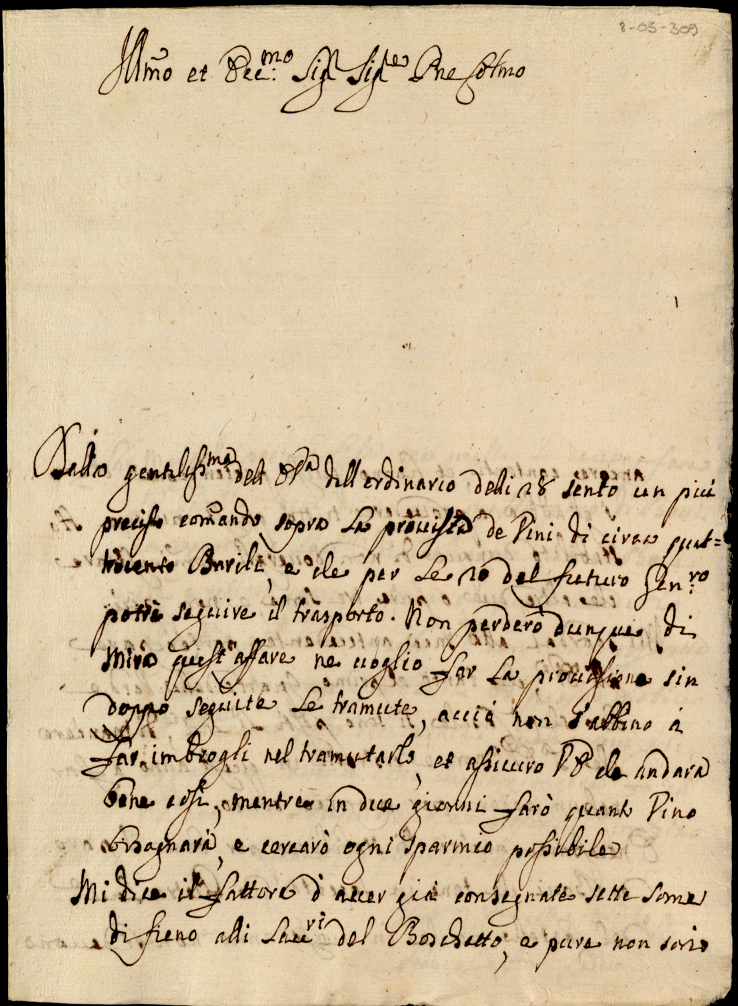 8-05-309
Illmo et Ecc:mo Sig Sigre Pne Colmo
Dalla gentilissma dell' Va dell'ordinario delli 28 sento un piu
preciso comando sopra la provista de Vini di circa quat=
trocento Barili, e che per le 20 del futuro Gen:ro
potrà seguire il trasporto. Non perderò dunque di
mira quest'affare ne voglio far la provisione sin
doppo seguite le tramute, acciò non s'abbino à
far imbrogli nel tramutarlo, et assicuro VE che andarà
bene così, mentre in due giorni farò quanto Vino
bisognarà, e cercarò ogni sparmio possibile
Mi dice il Fattore d'aver già consegnate sette some
di fieno alli del Boschetto, e pure non